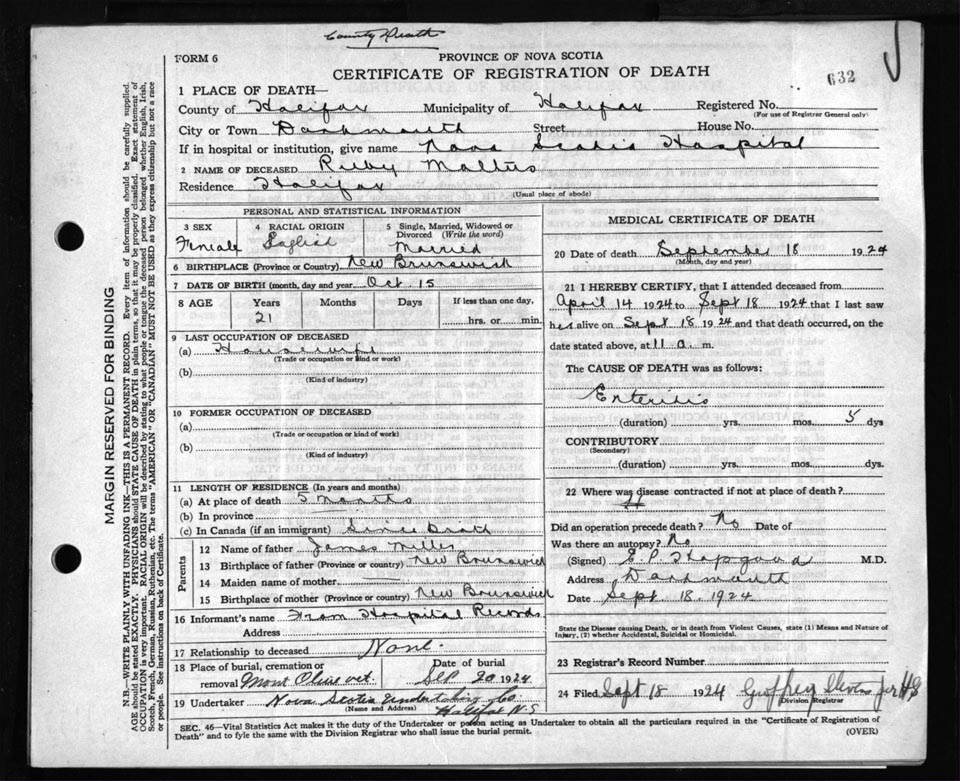 County Death
FORM 6
PROVINCE OF NOVA SCOTIA
CERTIFICATE OF REGISTRATION OF DEATH
632
1 PLACE OF DEATH—
County of Halifax Municipality of Halifax Registered No.
(For use of Registrar General only)
City or Town Dartmouth Street House No.
If in hospital or institution, give name Nova Scotia Hospital
2 NAME OF DECEASED Ruby
Residence Halifax
(Usual place of abode)
PERSONAL AND STATISTICAL INFORMATION
3 SEX 4 RACIAL ORIGIN 5 Single, Married, Widowed or Divorced (Write the word)
Female English Married
6 BIRTHPLACE (Province or Country) New Brunswick
7 DATE OF BIRTH (month, day and year) Oct 15
8 AGE Years Months Days If less than one day,
21 hrs. or min.
9 LAST OCCUPATION OF DECEASED
(a) Housewife
(Trade or occupation or kind or work)
(b)
(Kind of industry)
10 FORMER OCCUPATION OF DECEASED
(a)
(Trade or occupation or kind of work)
(b)
(Kind of industry)
11 LENGTH OF RESIDENCE (In years and months)
(a) At place of death 5 months
(b) In province
(c) In Canada (if an immigrant) Since
Parents
12 Name of father James
13 Birthplace of father (Province or country) New Brunswick
14 Maiden name of mother —
15 Birthplace of mother (Province or country) New Brunswick
16 Informant's name From Hospital Records
Address
17 Relationship to deceased None.
18 Place of burial, cremation or removal Mont Olivet Date of burial Sep 20 1924
19 Undertaker Nova Scotia Undertaking Co.
(Name and Address) Halifax N.S
MEDICAL CERTIFICATE OF DEATH
20 Date of death September 18 1924
(Month, day and year)
21 I HEREBY CERTIFY, that I attended deceased from
April 14 1924 to Sept 18 1924 that I last saw
her alive on Sept 18 1924 and that death occurred, on the
date stated above, at 11 a. m.
The CAUSE OF DEATH was as follows:
Enteritis
(duration) yrs. mos. 5 dys
CONTRIBUTORY
(Secondary)
(duration) yrs. mos. dys.
22 Where was disease contracted if not at place of death?
Did an operation precede death? No Date of
Was there an autopsy? No
(Signed) E P Hapgood M.D.
Address Dartmouth
Date Sept 18. 1924
State the Disease causing Death, or in death from Violent Causes, state (1) Means and Nature of
Injury, (2) whether Accidental, Suicidal or Homicidal.
23 Registrar's Record Number
24 Filed Sept 18 1924 Geoffrey
Division Registrar
SEC. 46—Vital Statistics Act makes it the duty of the Undertaker or person acting as Undertaker to obtain all the particulars required in the "Certificate of Registration of
Death" and to fyle the same with the Division Registrar who shall issue the burial permit. (OVER)
MARGIN RESERVED FOR BINDING
N.B.—WRITE PLAINLY WITH UNFADING INK—THIS IS A PERMANENT RECORD. Every item of information should be carefully supplied.
AGE should be stated EXACTLY. PHYSICIANS should STATE CAUSE OF DEATH in plain terms, so that it may be properly classified. Exact statement of
OCCUPATION is very important. RACIAL ORIGIN will be described by stating to what people or tongue the deceased person belonged whether English, Irish,
Scotch, French, German, Russian, Ruthenian, etc. The terms "AMERICAN" OR "CANADIAN" MUST NOT BE USED as they express citizenship but not a race
or people. See instructions on back of Certificate.